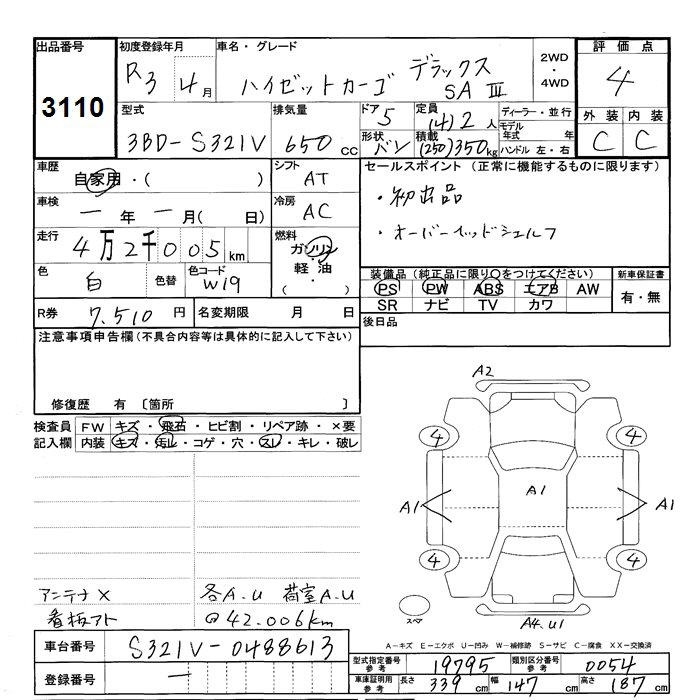 出品番号
3110
初度登録年月
R3 4月
車名・グレード
ハイゼットカーゴ デラックス SAⅢ
2WD
・
4WD
評価点
4
外装 内装
C C
型式
3BD-S321V
排気量
650cc
ドア 5
定員 (4)2人
形状 バン
積載 (250)350kg
ディーラー・並行
モデル年式 年
ハンドル 左・右
車歴
自家用・( )
シフト
AT
車検
一年 一月( 日)
冷房
AC
走行
4万2千005km
燃料
ガソリン
・
軽油
・
( )
色
白
色替
色コード
W19
R券 7,510円
名変期限 月 日
セールスポイント(正常に機能するものに限ります)
・初出品
・オーバーヘッドシェルフ
装備品(純正品に限り〇をつけてください)
PS PW ABS エアB AW
SR ナビ TV カワ
新車保証書
有・無
後日品
注意事項申告欄(不具合内容等は具体的に記入して下さい)
修復歴 有〔箇所 〕
検査員記入欄
FW キズ・飛石・ヒビ割・リペア跡・×要
内装 キズ・汚レ・コゲ・穴・スレ・キレ・破レ
アンテナ×
各A.U 荷室A.U
看板アト
@42.006km
A2
4
4
A1
A1
A1
4
4
スペア
A4.U1
A-キズ E-エクボ U-凹み W-補修跡 S-サビ C-腐食 XX-交換済
車台番号
S321V-0488613
登録番号
一
型式指定番号 参考
19795
類別区分番号 参考
0054
車庫証明用 参考
長さ 339
幅 147
高さ 187cm